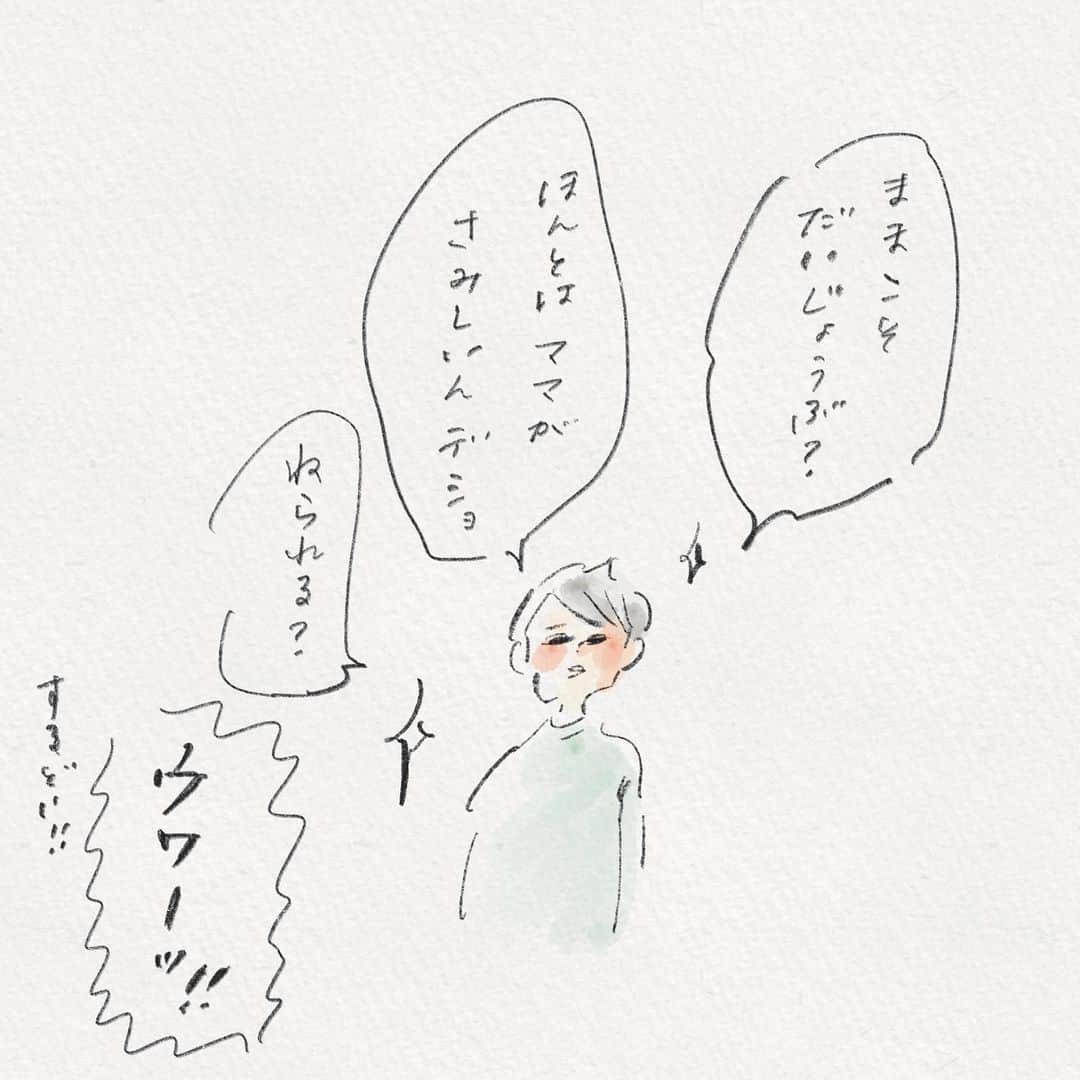 ままこそ
だいじょうぶ?
ほんとはママが
さみしいんデショ
ねられる?
ウワーッ!!
するどい!!